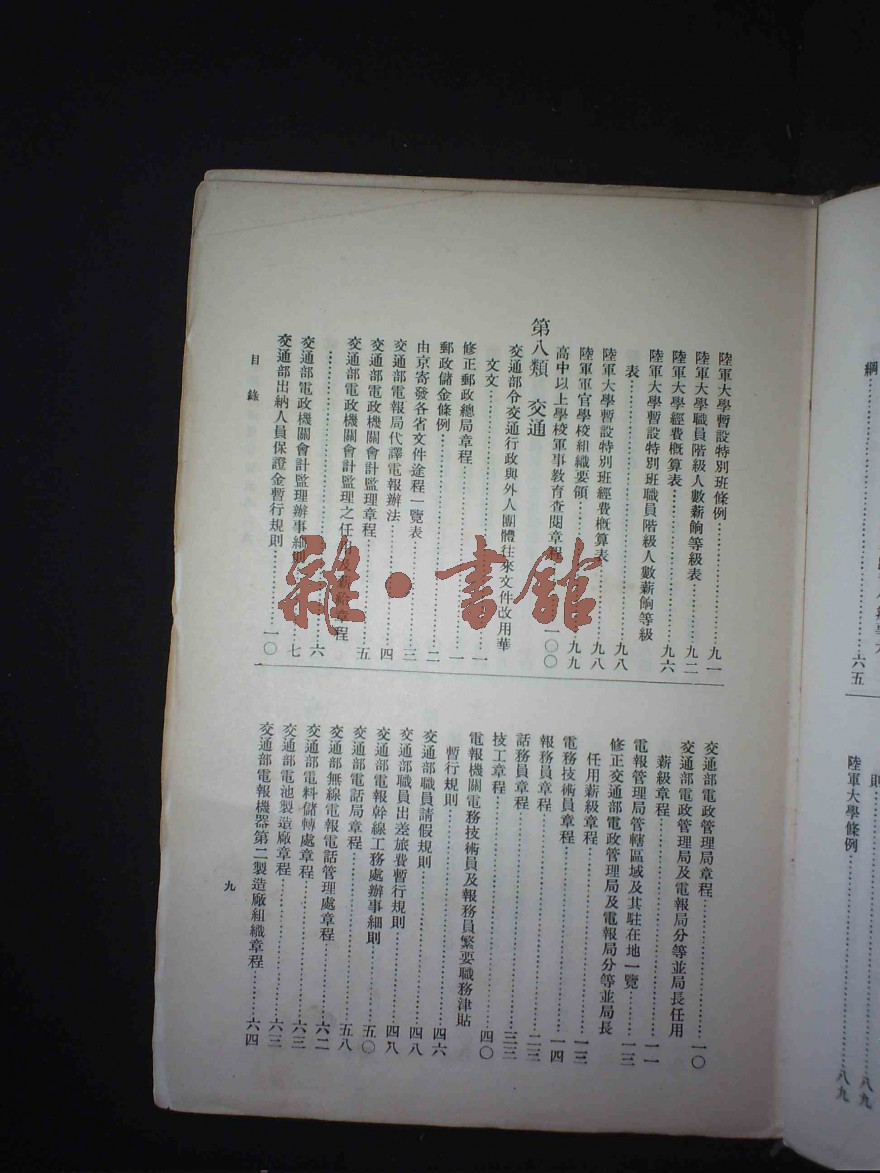 陸軍大學暫設特別班條例…………九一
陸軍大學職員階級人數薪餉等級表…………九二
陸軍大學經費概算表…………九六
陸軍大學暫設特別班職員階級人數薪餉等級
表…………九八
陸軍大學暫設特別班經費概算表…………九八
陸軍軍官學校組織要領…………九九
高中以上學校軍事教育查閱章程…………一〇〇
第八類 交通
交通部令交通行政與外人團體往來文件改用華
文文…………一
修正郵政總局章程…………一
郵政儲金條例…………二
由京寄發各省文件途程一覽表…………三
交通部電報局代譯電報辦法…………四
交通部電政機關會計監理章程…………五
交通部電政機關會計監理之任用及薪給章程
…………六
交通部電政機關會計監理辦事細則…………七
交通部出納人員保證金暫行規則…………一〇
目錄
交通部電政管理局章程…………一〇
交通部電政管理局及電報局分等並局長任用
薪級章程…………一一
電報管理局管轄區域及其駐在地一覽…………一三
修正交通部電政管理局及電報局分等並局長
任用薪級章程…………一三
電務技術員章程…………一四
報務員章程…………二三
話務員章程…………三三
技工章程…………四〇
電報機關電務技術員及報務員繁要職務津貼
暫行規則…………四六
交通部職員請假規則…………四八
交通部職員出差旅費暫行規則…………四八
交通部電報幹線工務處辦事細則…………五〇
交通部電話局章程…………五八
交通部無線電報電話管理處章程…………六二
交通部電料儲轉處章程…………六三
交通部電池製造廠章程…………六三
交通部電報機器第二製造廠組織章程…………六四
九
綱
六五
則…………八九
陸軍大學條例…………八九
雜·書館